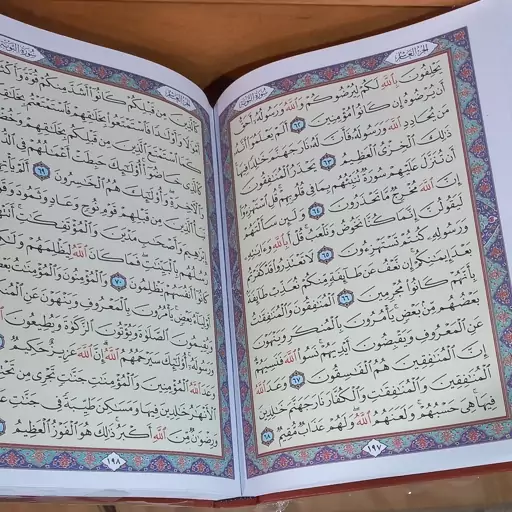 الجزء العاشر
سورة التوبة
يَحْلِفُونَ بِٱللَّهِ لَكُمْ لِيُرْضُوكُمْ وَٱللَّهُ وَرَسُولُهُۥٓ أَحَقُّ
أَن يُرْضُوهُ إِن كَانُوا۟ مُؤْمِنِينَ ٦٢ أَلَمْ يَعْلَمُوٓا۟ أَنَّهُۥ
مَن يُحَادِدِ ٱللَّهَ وَرَسُولَهُۥ فَأَنَّ لَهُۥ نَارَ جَهَنَّمَ خَٰلِدًا فِيهَا
ذَٰلِكَ ٱلْخِزْىُ ٱلْعَظِيمُ ٦٣ يَحْذَرُ ٱلْمُنَٰفِقُونَ
أَن تُنَزَّلَ عَلَيْهِمْ سُورَةٌ تُنَبِّئُهُم بِمَا فِى قُلُوبِهِمْ قُلِ ٱسْتَهْزِءُوٓا۟
إِنَّ ٱللَّهَ مُخْرِجٌ مَّا تَحْذَرُونَ ٦٤ وَلَئِن سَأَلْتَهُمْ
لَيَقُولُنَّ إِنَّمَا كُنَّا نَخُوضُ وَنَلْعَبُ قُلْ أَبِٱللَّهِ وَءَايَٰتِهِۦ
وَرَسُولِهِۦ كُنتُمْ تَسْتَهْزِءُونَ ٦٥ لَا تَعْتَذِرُوا۟ قَدْ كَفَرْتُم
بَعْدَ إِيمَٰنِكُمْ إِن نَّعْفُ عَن طَآئِفَةٍ مِّنكُمْ نُعَذِّبْ طَآئِفَةًۢ
بِأَنَّهُمْ كَانُوا۟ مُجْرِمِينَ ٦٦ ٱلْمُنَٰفِقُونَ وَٱلْمُنَٰفِقَٰتُ
بَعْضُهُم مِّنۢ بَعْضٍ يَأْمُرُونَ بِٱلْمُنكَرِ وَيَنْهَوْنَ
عَنِ ٱلْمَعْرُوفِ وَيَقْبِضُونَ أَيْدِيَهُمْ نَسُوا۟ ٱللَّهَ فَنَسِيَهُمْ
إِنَّ ٱلْمُنَٰفِقِينَ هُمُ ٱلْفَٰسِقُونَ ٦٧ وَعَدَ ٱللَّهُ
ٱلْمُنَٰفِقِينَ وَٱلْمُنَٰفِقَٰتِ وَٱلْكُفَّارَ نَارَ جَهَنَّمَ خَٰلِدِينَ
فِيهَا هِىَ حَسْبُهُمْ وَلَعَنَهُمُ ٱللَّهُ وَلَهُمْ عَذَابٌ مُّقِيمٌ ٦٨
١٩٧
الجزء العاشر
سورة التوبة
مِن قَبْلِكُمْ كَانُوٓا۟ أَشَدَّ مِنكُمْ قُوَّةً وَأَكْثَرَ
أَمْوَٰلًا وَأَوْلَٰدًا فَٱسْتَمْتَعُوا۟ بِخَلَٰقِهِمْ فَٱسْتَمْتَعْتُم بِخَلَٰقِكُمْ
كَمَا ٱسْتَمْتَعَ ٱلَّذِينَ مِن قَبْلِكُم بِخَلَٰقِهِمْ وَخُضْتُمْ
كَٱلَّذِى خَاضُوٓا۟ أُو۟لَٰٓئِكَ حَبِطَتْ أَعْمَٰلُهُمْ فِى ٱلدُّنْيَا
وَٱلْءَاخِرَةِ وَأُو۟لَٰٓئِكَ هُمُ ٱلْخَٰسِرُونَ ٦٩ أَلَمْ يَأْتِهِمْ
نَبَأُ ٱلَّذِينَ مِن قَبْلِهِمْ قَوْمِ نُوحٍ وَعَادٍ وَثَمُودَ وَقَوْمِ
إِبْرَٰهِيمَ وَأَصْحَٰبِ مَدْيَنَ وَٱلْمُؤْتَفِكَٰتِ أَتَتْهُمْ
رُسُلُهُم بِٱلْبَيِّنَٰتِ فَمَا كَانَ ٱللَّهُ لِيَظْلِمَهُمْ وَلَٰكِن
كَانُوٓا۟ أَنفُسَهُمْ يَظْلِمُونَ ٧٠ وَٱلْمُؤْمِنُونَ وَٱلْمُؤْمِنَٰتُ بَعْضُهُمْ
أَوْلِيَآءُ بَعْضٍ يَأْمُرُونَ بِٱلْمَعْرُوفِ وَيَنْهَوْنَ عَنِ ٱلْمُنكَرِ
وَيُقِيمُونَ ٱلصَّلَوٰةَ وَيُؤْتُونَ ٱلزَّكَوٰةَ وَيُطِيعُونَ ٱللَّهَ
وَرَسُولَهُۥٓ أُو۟لَٰٓئِكَ سَيَرْحَمُهُمُ ٱللَّهُ إِنَّ ٱللَّهَ عَزِيزٌ حَكِيمٌ
وَعَدَ ٱللَّهُ ٱلْمُؤْمِنِينَ وَٱلْمُؤْمِنَٰتِ جَنَّٰتٍ تَجْرِى مِن تَحْتِهَا
ٱلْأَنْهَٰرُ خَٰلِدِينَ فِيهَا وَمَسَٰكِنَ طَيِّبَةً فِى جَنَّٰتِ عَدْنٍ
وَرِضْوَٰنٌ مِّنَ ٱللَّهِ أَكْبَرُ ذَٰلِكَ هُوَ ٱلْفَوْزُ ٱلْعَظِيمُ
١٩٨